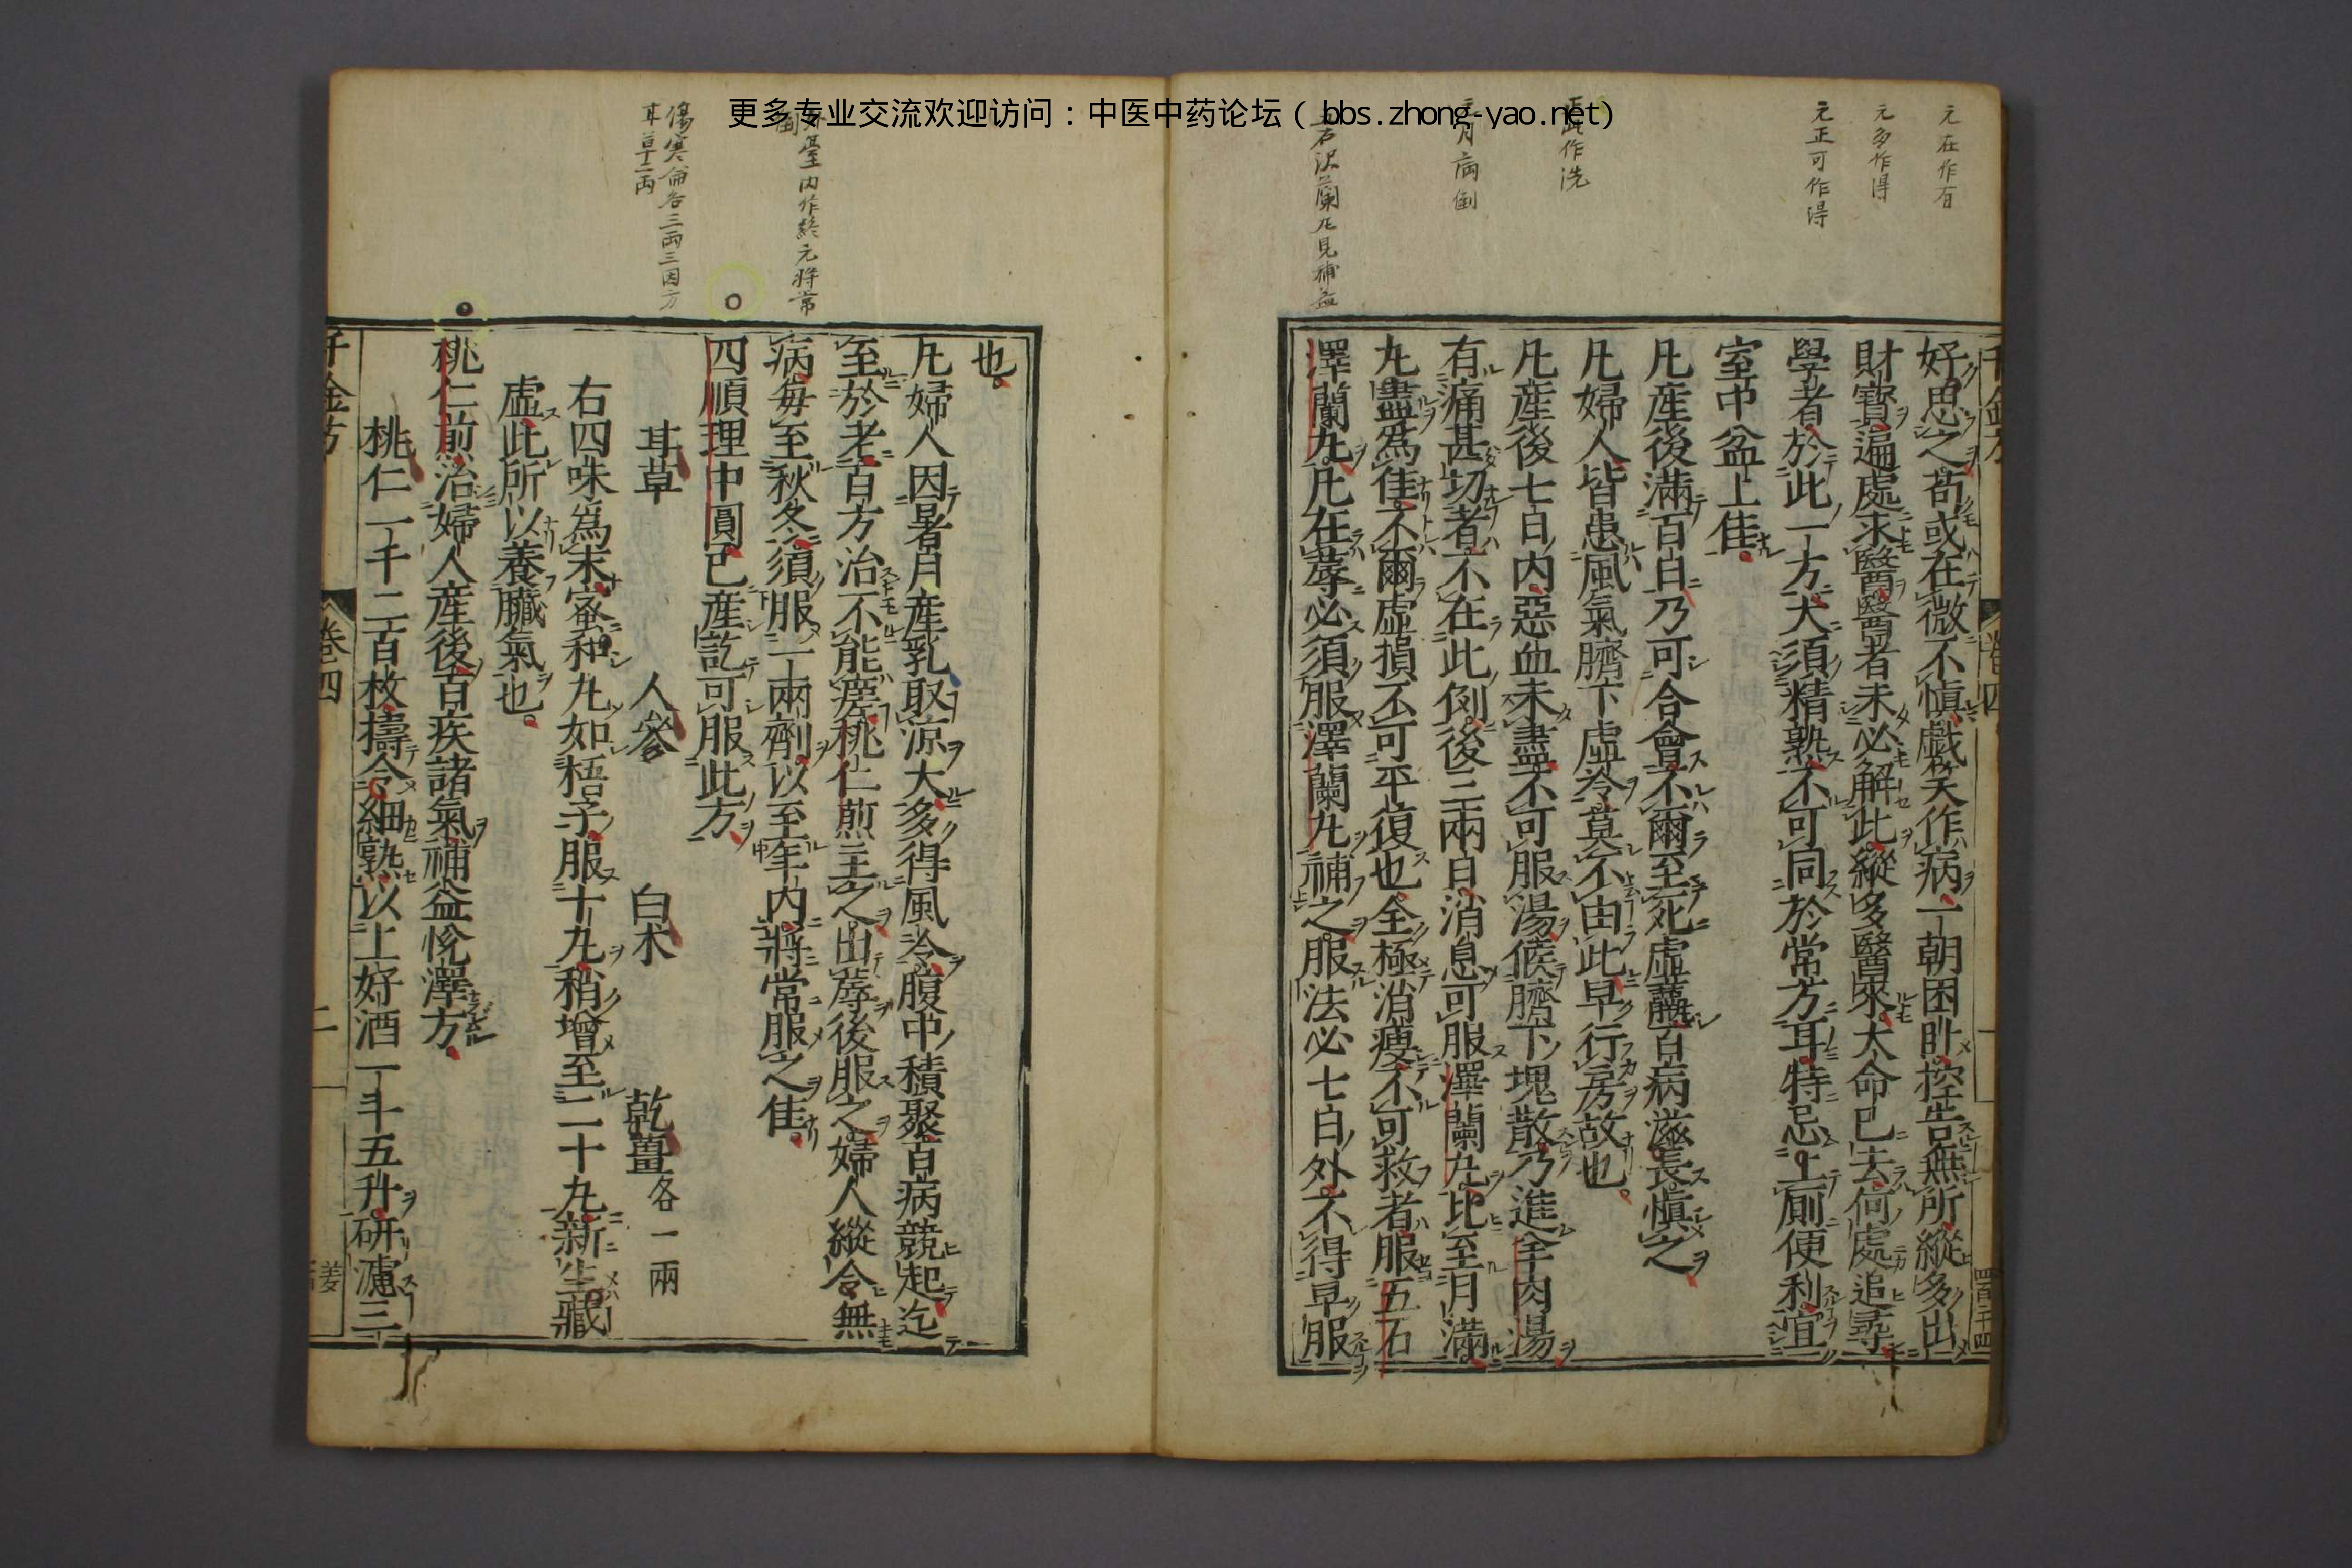 更多专业交流欢迎访问：中医中药论坛（bbs.zhong-yao.net）
元在作有
元多作得
元正可作得
作洗
月病倒
石沢蘭凡見補益
好思之苟或在微不愼戲笑作病一朝困卧控告無所縱多出
財寶遍處求醫醫者未必解此縱多醫來大命已去何處追尋
學者於此一方大須精熟不可同於常方耳特忌上厠便利宜
室中盆上佳
凡産後滿百日乃可合會不爾至死虛羸百病滋長愼之
凡婦人皆患風氣臍下虛冷莫不由此早行房故也
凡産後七日内惡血未盡不可服湯候臍下塊散乃進羊肉湯
有痛甚切者不在此例後三兩日消息可服澤蘭丸比至月滿
丸盡爲佳不爾虛損不可平復也全極消瘦不可救者服五石
澤蘭丸凡在蓐必須服澤蘭丸補之服法必七日外不得早服
千金方
卷四
也
凡婦人因暑月産乳取涼太多得風冷腹中積聚百病競起迄
至於老百方治不能瘥桃仁煎主之出蓐後服之婦人縱令無
病每至秋冬須服一兩劑以至年内將常服之佳
四順理中圓已産訖可服此方
耳草　人參　白朮　乾薑各一兩
右四味爲末蜜和丸如梧子服十丸稍增至二十丸新生藏
虛此所以養臟氣也
桃仁煎治婦人産後百疾諸氣補益悅澤方
桃仁一千二百枚擣令細熟以上好酒一斗五升研濾三
臺内作終元將常
傷寒論各三兩三因方
耳草二両
千金方
卷四
二
姜